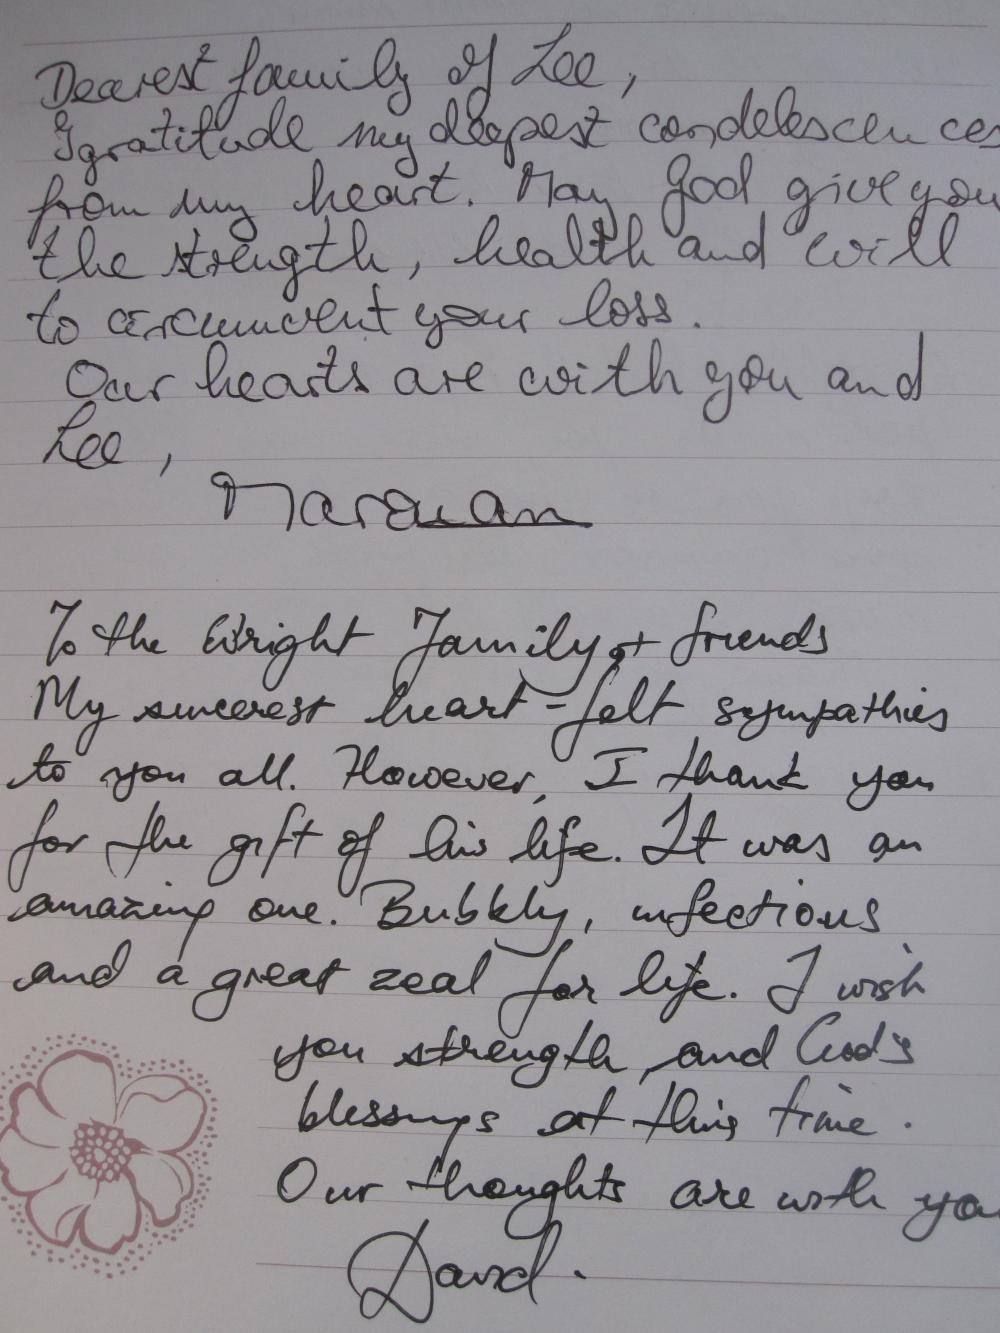 Dearest family of Lee,
I gratitude my deepest condelescences
from my heart. May God give you
the strength, health and will
to circumvent your loss.
Our hearts are with you and
Lee,
To the Wright Family + friends
My sincerest heart-felt sympathies
to you all. However, I thank you
for the gift of his life. It was an
amazing one. Bubbly, infectious
and a great zeal for life. I wish
you strength and God's
blessings at this time.
Our thoughts are with you
David.